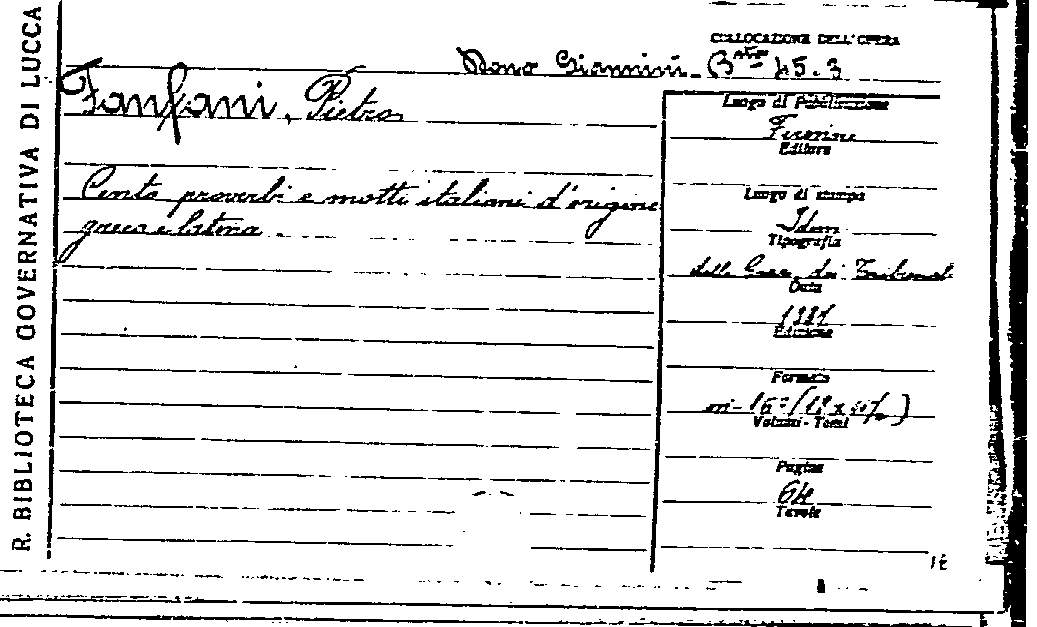 R. BIBLIOTECA GOVERNATIVA DI LUCCA
COLLOCAZIONE DELL'OPERA
Dono Giannini. B 45.3
Fanfani, Pietro
Cento proverbi e motti italiani d'origine
greca e latina
Luogo di Pubblicazione
Firenze
Editore
Luogo di stampa
Idem
Tipografia
delle dei Tribunali
Data
1881
Edizione
Formato
in-16°
Volumi - Tomi
Pagine
64
Tavole